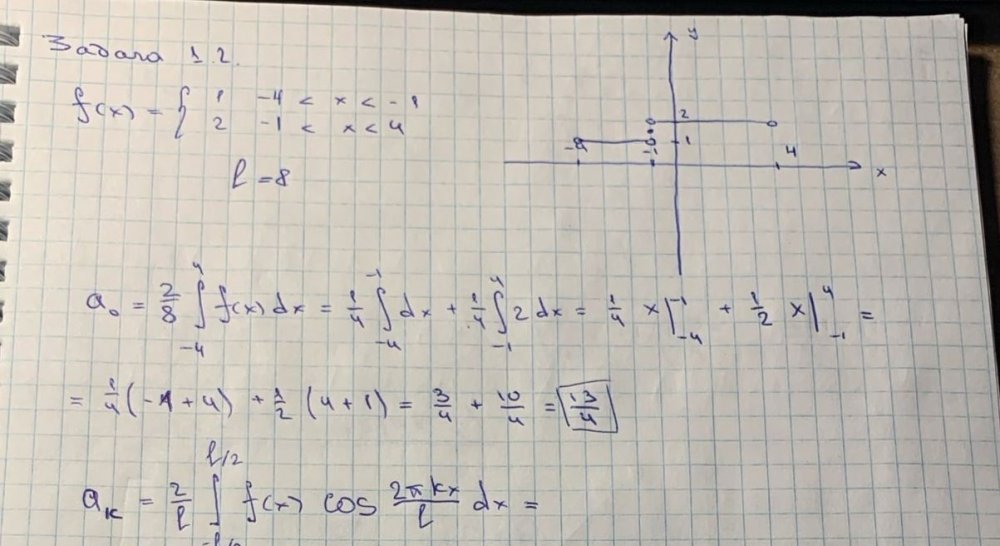 Задача 1.2.
f(x) = { 1 -4 < x < -1
2 -1 < x < 4
l = 8
y
2
1
-4 -1 4
x
a₀ = 2/8 ∫_{-4}^{4} f(x) dx = 1/4 ∫_{-4}^{-1} dx + 1/4 ∫_{-1}^{4} 2 dx = 1/4 x|_{-4}^{-1} + 1/2 x|_{-1}^{4} =
= 1/4 (-1 + 4) + 1/2 (4 + 1) = 3/4 + 10/4 = 13/4
a_k = 2/l ∫_{-l/2}^{l/2} f(x) cos 2πkx/l dx =